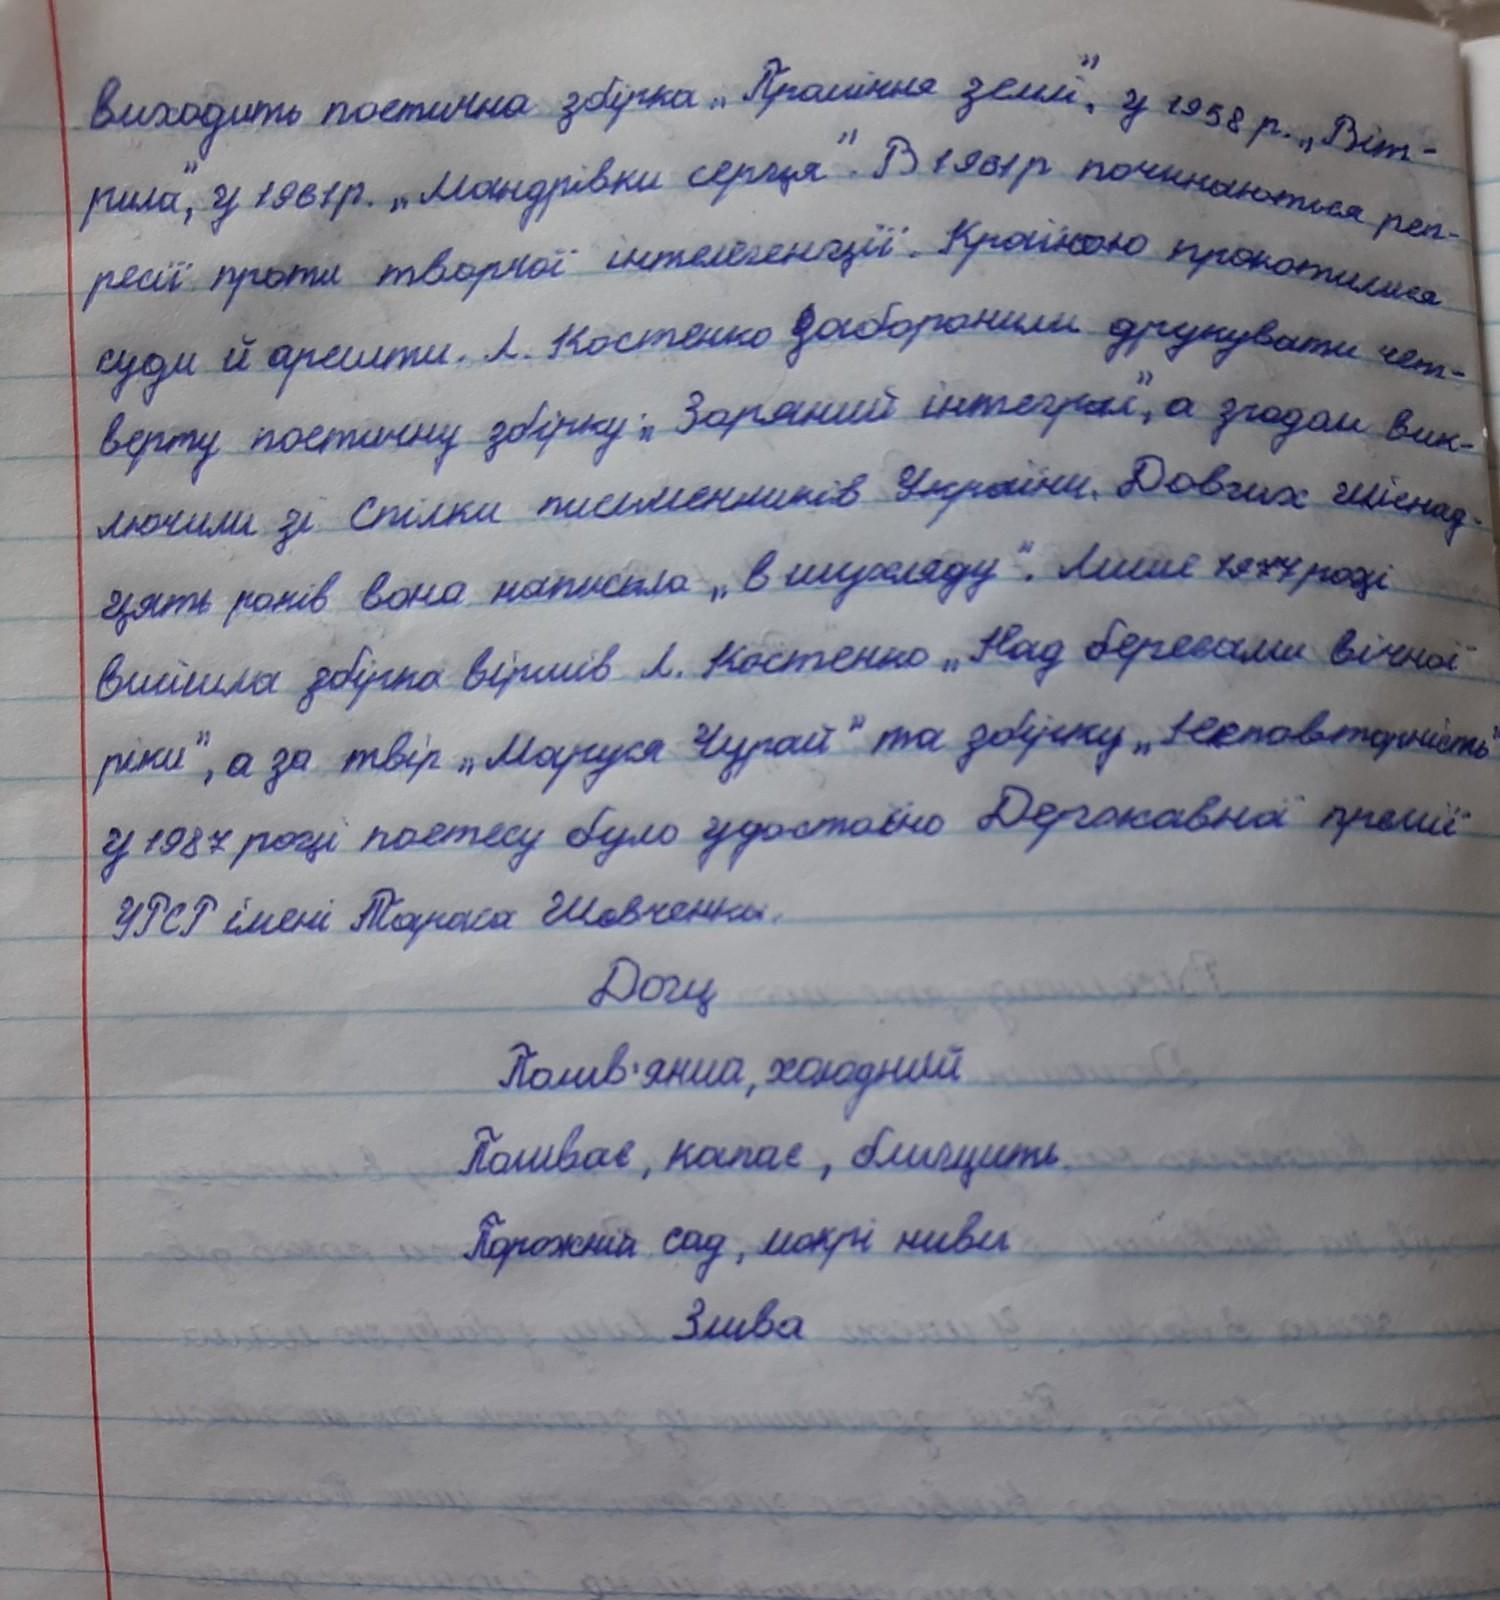 виходить поетична збірка „Проміння землі", у 1958 р. „Віт-
рила", у 1961р. „Мандрівки серця". В 1961р починаються реп-
ресії проти творчої інтелегенції. Країною прокотилися
суди й арешти. Л. Костенко заборонили друкувати чет-
верту поетичну збірку: „Зоряний інтеграл", а згодом вик-
лючили зі Спілки письменників України. Довгих шіснад-
цять років вона написала „в шухляду". Лише 1977 році
вийшла збірка віршів Л. Костенко „Над берегами вічної
ріки", а за твір „Маруся Чурай" та збірку „Неповторність"
у 1987 році поетесу було удостоїно Державної премії
УРСР імені Тараса Шевченка.
Дощ
Полив'яний, холодний
Поливає, капає, блищить
Порожній сад, мокрі ниви
Злива